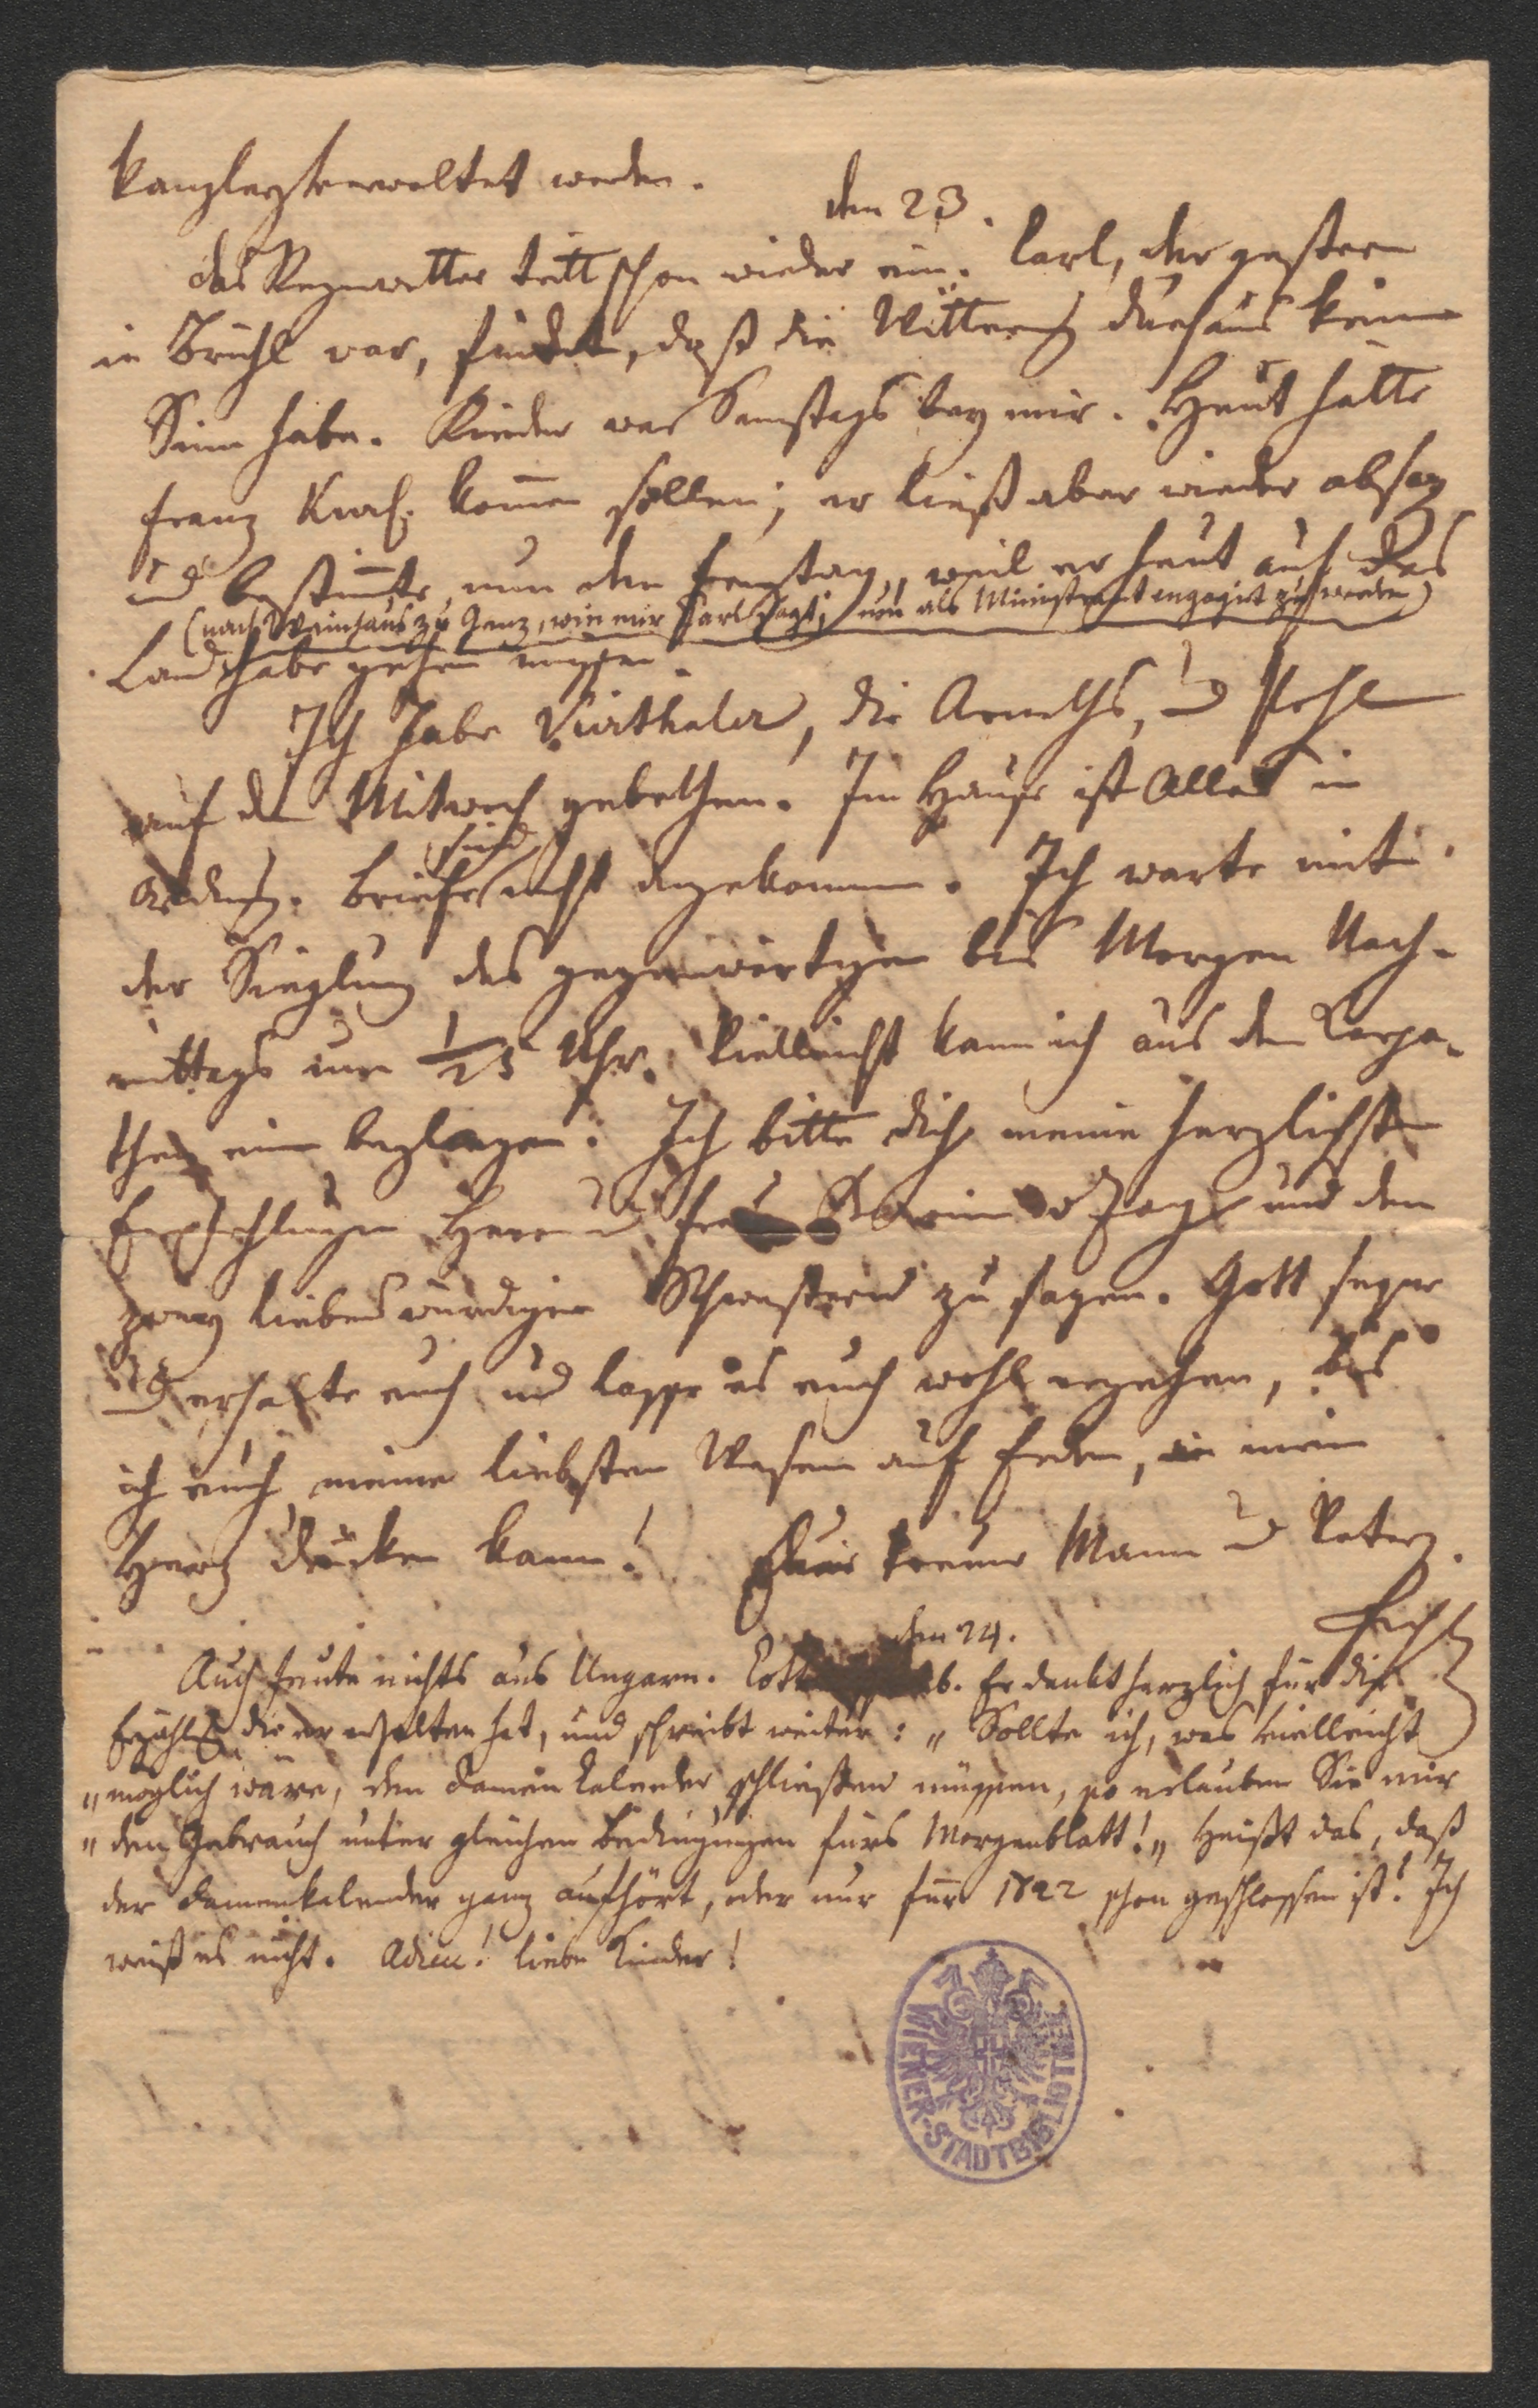 Kanzley verwaltet werden.
den 23.
Das Regenwetter tritt schon wieder ein. Carl, der gestern
in Brühl war, findet, daß die Witterung durchaus keinen
Sinn habe. Rinder war Samstags bey mir. Heut hätte
Franz kommen sollen; er ließ aber wieder absagen
und bestimmte nun den Freytag, weil er heut auf das
(nach Weinhaus zu Ganz, wie mir Carl sagt; um als Ministrant engagirt zu werden)
Land habe gehen müssen.
Ich habe Vierthaler, die Arneths, und Pohl
auf den Mitwoch gebethen. Im Hause ist Alles in
Ordnung. Briefe sind nicht angekommen. Ich warte mit
der Sieglung des gegenwärtigen bis Morgen Nach-
mittags um 1/25 Uhr. Vielleicht kann ich aus den Carpa-
then einen beylegen. Ich bitte dich meine herzlichsten
Empfehlungen Herrn und Frau und den
zwey liebenswürdigen Schwestern zu sagen. Gott segne
und erhalte euch und lasse es euch wohl ergehen, bis
ich euch, meine liebsten Wesen auf Erden, an mein
Herz drücken kann! Euer treuer Mann und Vater.
den 24.
Auch heute nichts aus Ungarn. Er dankt herzlich für die
Erzählung die er erhalten hat, und schreibt weiter: „Sollte ich, was vielleicht
„möglich wäre, den Damen Calender schließen müssen, so erlauben Sie mir
„den Gebrauch unter gleichen Bedingungen fürs Morgenblatt!„ Heißt das, daß
der Damenkalender ganz aufhört, oder nur für 1822 schon geschlossen ist? Ich
weiß es nicht. Adieu! liebe Kinder!
WIENER-STADTBIBLIOTHEK